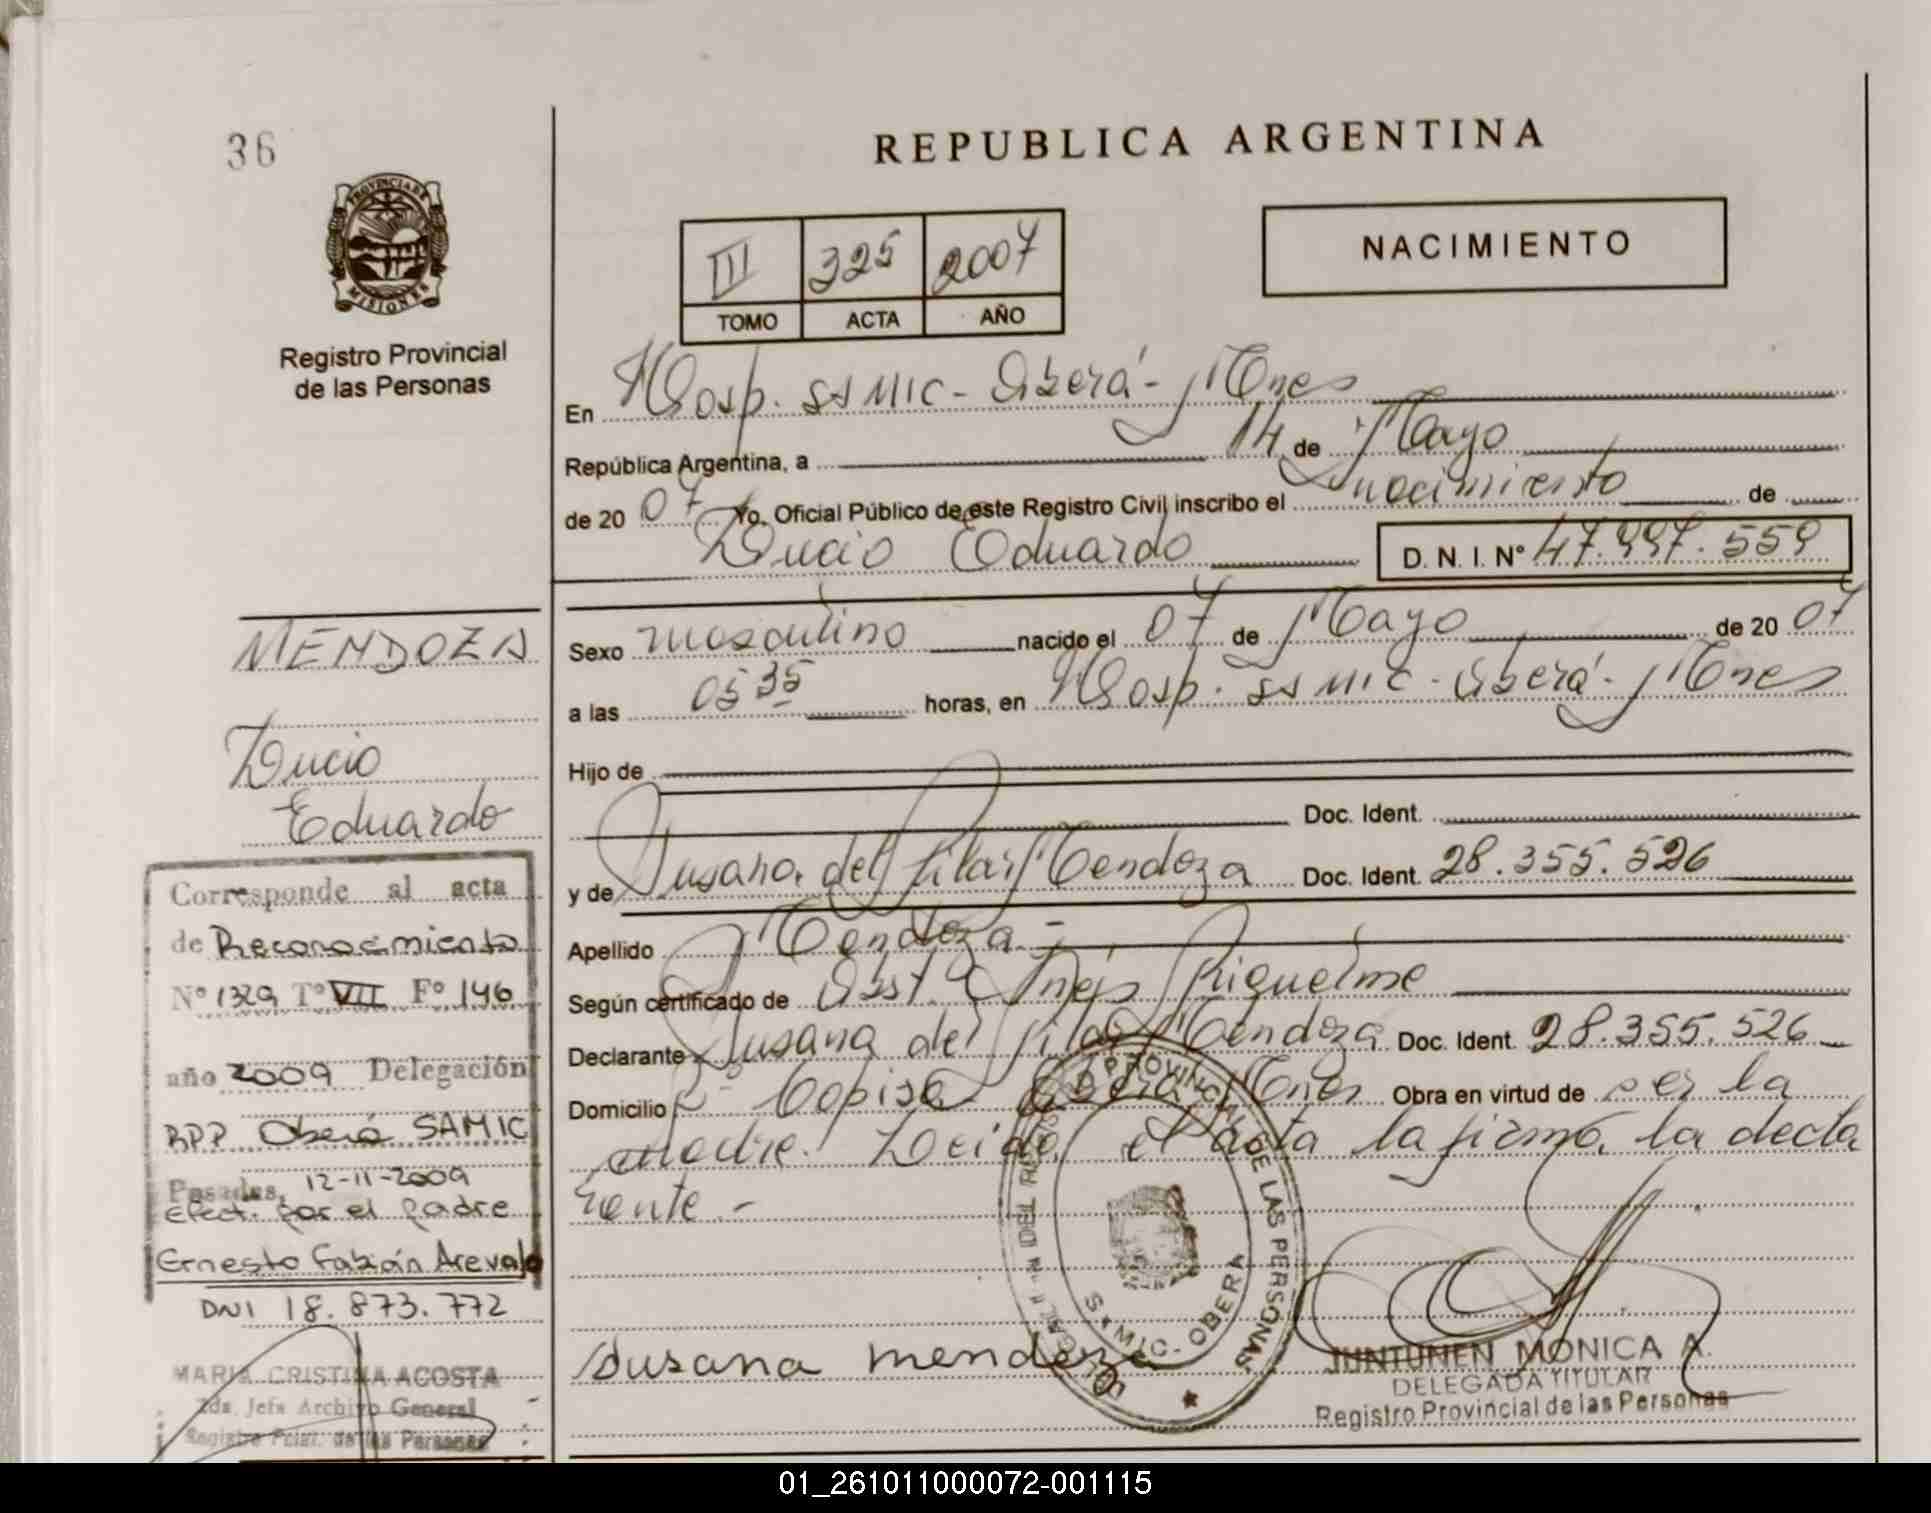 36
REPUBLICA ARGENTINA
PROVINCIA DE
MISIONES
Registro Provincial
de las Personas
III 325 2007
TOMO ACTA AÑO
NACIMIENTO
En Hosp. SAMIC - Oberá - Mnes
República Argentina, a 14 de Mayo
de 20 07 Yo, Oficial Público de este Registro Civil inscribo el nacimiento de
Lucio Eduardo D. N. I. Nº 47.997.559
MENDOZA
Lucio
Eduardo
Sexo masculino nacido el 07 de Mayo de 20 07
a las 05 35 horas, en Hosp. SAMIC - Oberá - Mnes
Hijo de
Doc. Ident.
y de Susana del Pilar Mendoza Doc. Ident. 28.355.526
Apellido Mendoza -
Según certificado de Obst. Inés Riquelme
Declarante Susana del Pilar Mendoza Doc. Ident. 28.355.526
Domicilio Oberá Mnes Obra en virtud de ser la
madre. Leida el acta la firma la decla
rante. -
Corresponde al acta
de Reconocimiento
Nº 1329 Tº VII Fº 146
año 2009 Delegación
RPP Oberá SAMIC
Posadas, 12-11-2009
Efect. por el padre
Ernesto Fabián Arevalo
DNI 18.873.772
MARIA CRISTINA ACOSTA
2da. Jefa Archivo General
Registro Pcial. de las Personas
PROVINCIAL DE LAS PERSONAS
SAMIC - OBERA
Susana mendoza
JUNTUNEN MONICA A.
DELEGADA TITULAR
Registro Provincial de las Personas
01_261011000072-001115